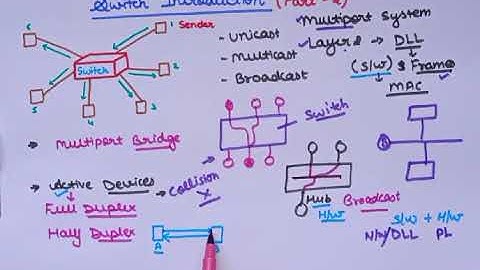 Switch Introduction (Part-2)
1 Sender
6
Switch
2
5
4
3
- Unicast
- Multicast
- Broadcast
Multiport System
Layer 2 → DLL
(S/w) & Frame
MAC
Switch
→ Multiport Bridge
→ Active Devices → Collision
X
Full Duplex
Half Duplex
A
Hub
H/w
Broadcast
S/w + H/w
N/w/DLL PL